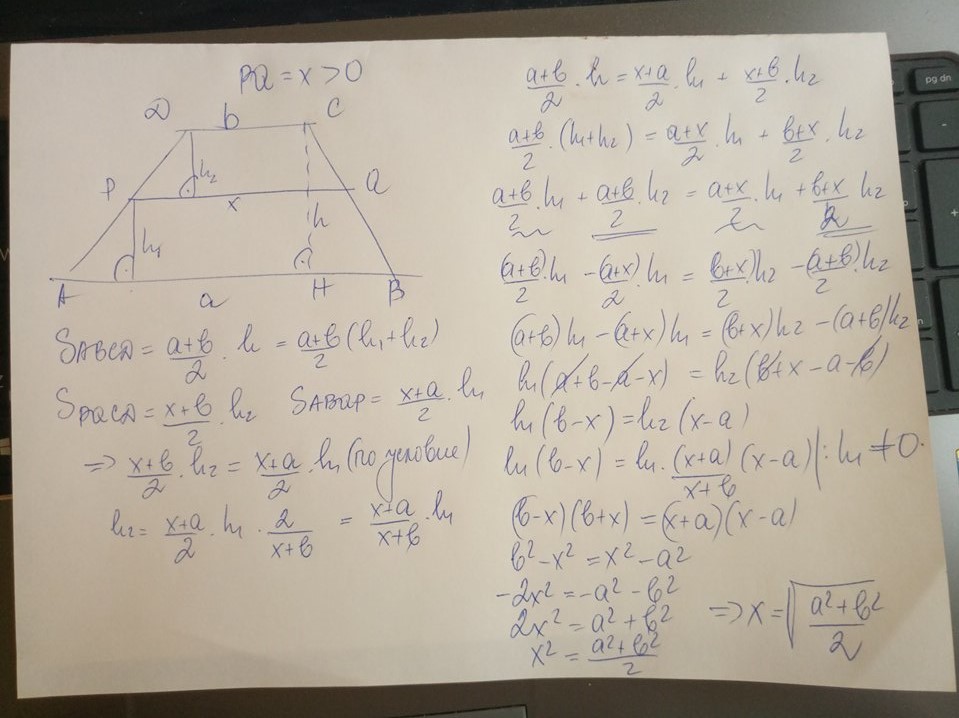 PQ = x > 0
D b C
h₂
P x Q
h₁ h
A a H B
S_ABCD = (a+b)/2 · h = (a+b)/2 (h₁+h₂)
S_PQCD = (x+b)/2 · h₂ S_ABQP = (x+a)/2 · h₁
=> (x+b)/2 · h₂ = (x+a)/2 · h₁ (по условие)
h₂ = (x+a)/2 · h₁ · 2/(x+b) = (x+a)/(x+b) · h₁
(a+b)/2 · h = (x+a)/2 · h₁ + (x+b)/2 · h₂
(a+b)/2 · (h₁+h₂) = (a+x)/2 · h₁ + (b+x)/2 · h₂
(a+b)/2 · h₁ + (a+b)/2 · h₂ = (a+x)/2 · h₁ + (b+x)/2 h₂
(a+b)/2 · h₁ - (a+x)/2 · h₁ = (b+x)/2 h₂ - (a+b)/2 h₂
(a+b) h₁ - (a+x) h₁ = (b+x) h₂ - (a+b) h₂
h₁ (a+b-a-x) = h₂ (b+x-a-b)
h₁ (b-x) = h₂ (x-a)
h₁ (b-x) = h₁ · (x+a)/(x+b) (x-a) | : h₁ ≠ 0
(b-x)(b+x) = (x+a)(x-a)
b² - x² = x² - a²
-2x² = -a² - b²
2x² = a² + b²
x² = (a²+b²)/2
=> x = √((a²+b²)/2)
pg dn